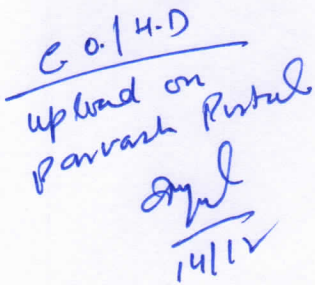 C.O./H.D
upload on
Parvash Portal
14/12